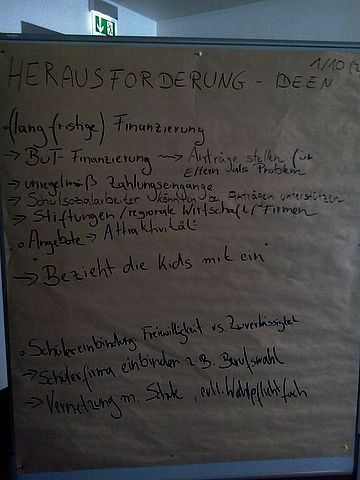 HERAUSFORDERUNG - IDEEN
1/10 (2
• (langfristige) Finanzierung
→ BuT-Finanzierung ~~> Anträge stellen für
Eltern als Problem
→ unregelmäß Zahlungseingänge
→ Schulsozialarbeiter können bei Anträgen unterstützen
→ Stiftungen / regionale Wirtschaft / Firmen
• Angebote → Attraktivität
→ "Bezieht die Kids mit ein"
• Schülereinbindung: Freiwilligkeit vs. Zuverlässigkeit
→ Schülerfirma einbinden z.B. Berufswahl
→ Vernetzung m. Schule, evtl. Wahlpflichtfach